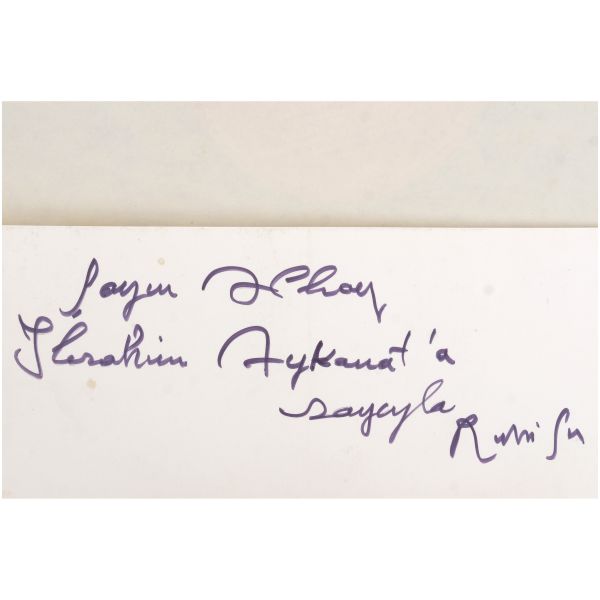 Sayın Albay
İbrahim Aykanat'a
saygıyla
Ruhi Su